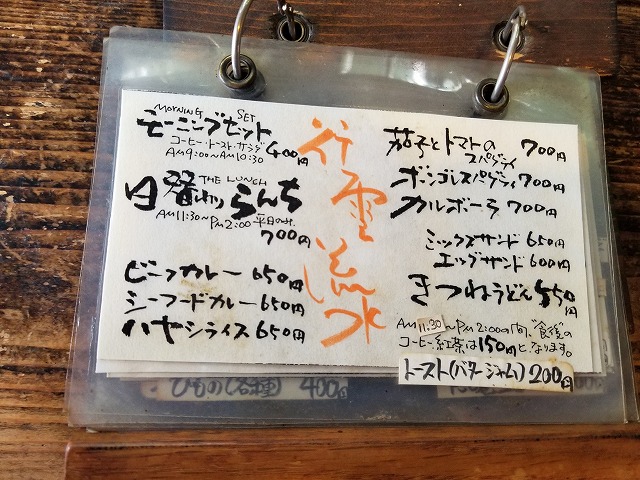 MORNING SET
モーニングセット
コーヒー・トースト・サラダ
AM9:00〜AM10:30 400円
THE LUNCH
日替わりらんち
AM11:30〜PM2:00 平日のみ
700円
ビーフカレー 650円
シーフードカレー 650円
ハヤシライス 650円
行雲流水
茄子とトマトの
スパゲティ 700円
ボンゴレスパゲティ 700円
カルボナーラ 700円
ミックスサンド 650円
エッグサンド 600円
きつねうどん 550円
AM11:30〜PM2:00の間、"食後"の
コーヒー・紅茶は150円となります。
トースト(バタージャム) 200円
ひもの(各種) 400円